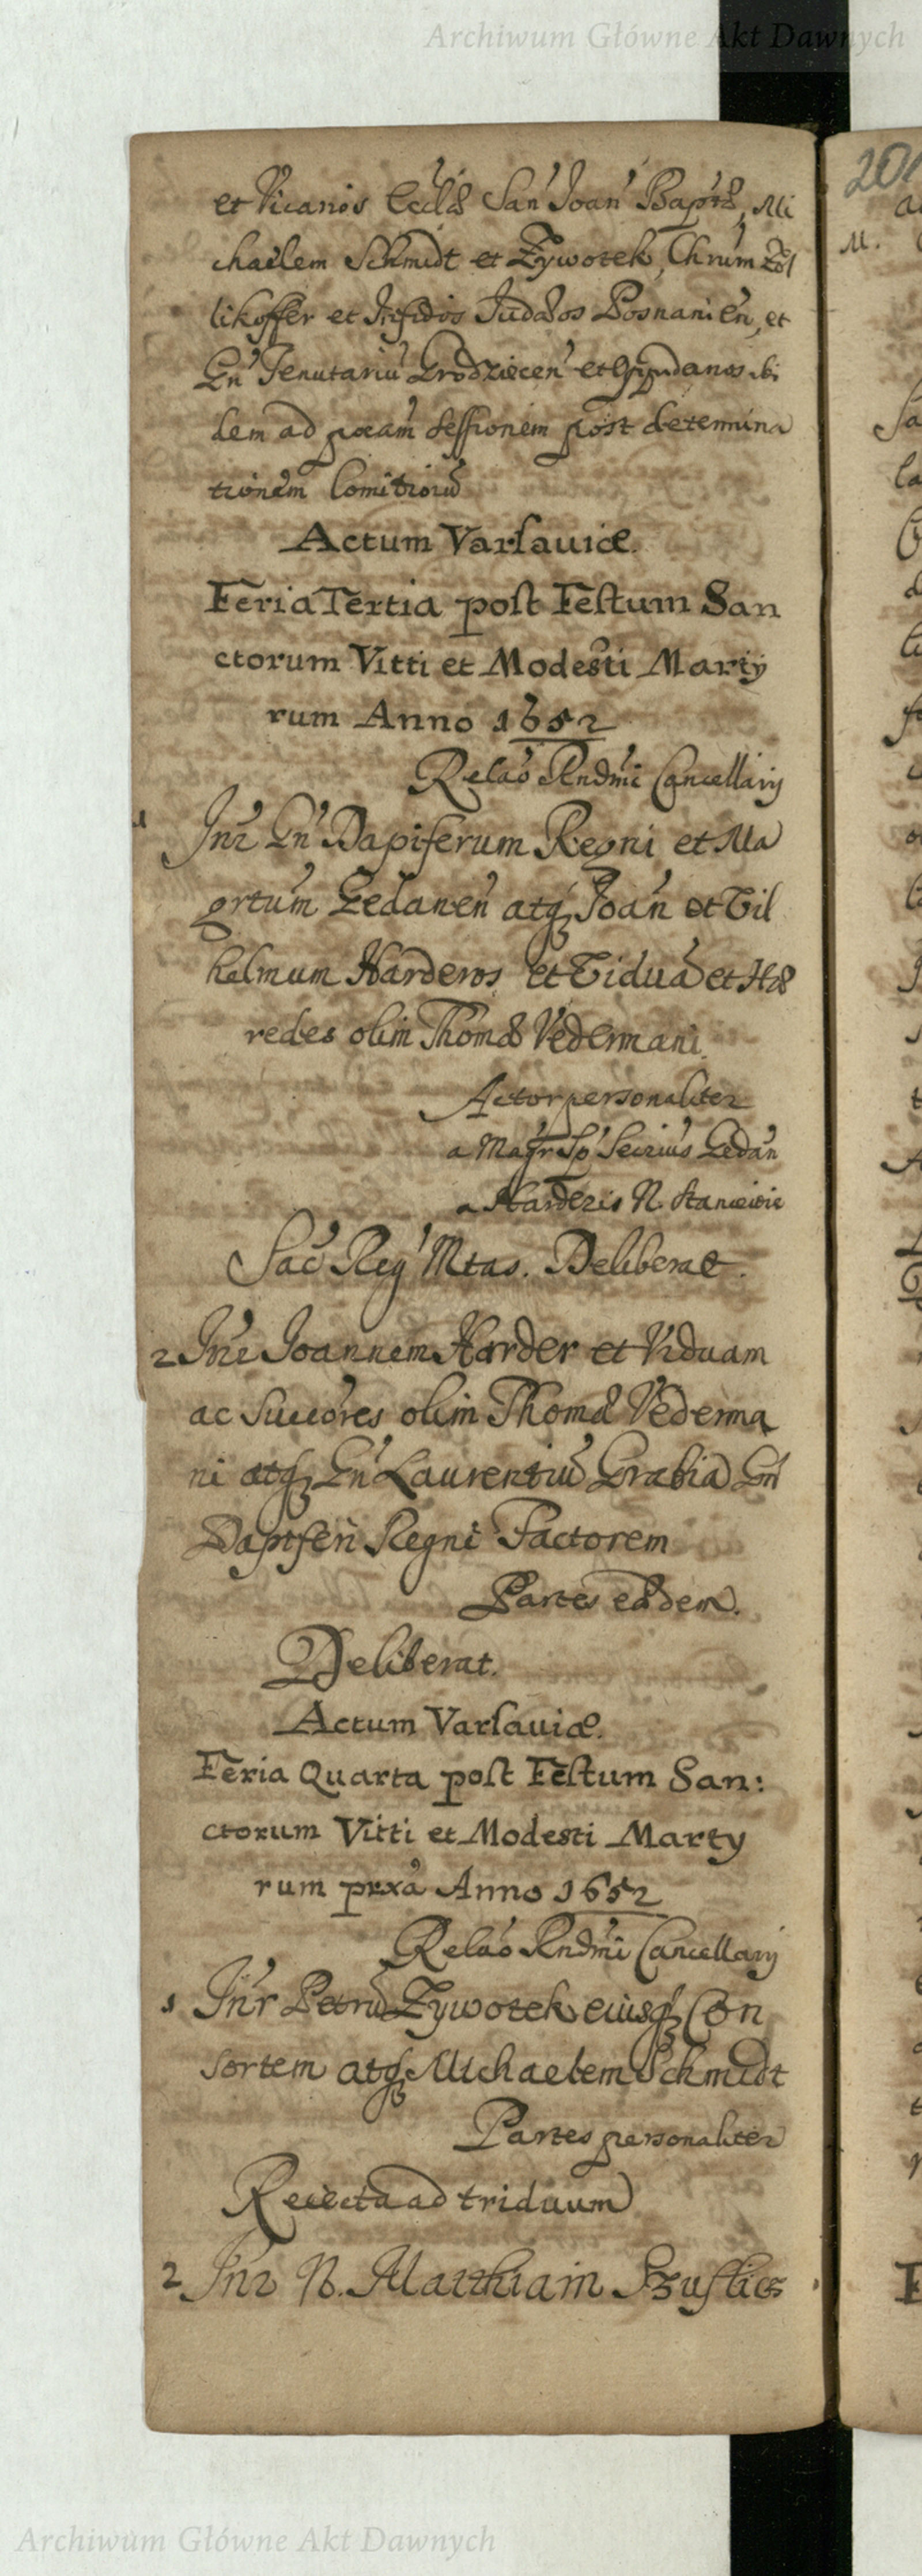 Archiwum Główne Akt Dawnych
201
et Vicarios Ecclæ San Joan Baptæ, Mi
chaelem Schmidt et Zywotek, Chrum Zol
likoffer et Infidos Judæos Posnanien, et
Gn Tenutariũ Grodziecen et Oppidanos ibi
dem ad pxam sessionem post determina
tionem Comitiorũ
Actum Varsaviæ.
Feria Tertia post Festum San
ctorum Vitti et Modesti Marty
rum Anno 1652
Relao Rndmi Cancellarij
Inr Gn Dapiferum Regni et Ma
grtum Gedanen atq Joan et Vil
helmum Harderos et Vidua et Hæ
redes olim Thomæ Vedermani.
Actor personaliter
a Magr Sp Secrius Gedan
a Harderis N.
Sac Reg Mtas. Deliberat.
2 Inr Joannem Harder et Viduam
ac Succores olim Thomæ Vederma
ni atq Gn Laurentiũ Grabia Gn
Dapiferi Regni Factorem
Partes eædem.
Deliberat.
Actum Varsaviæ.
Feria Quarta post Festum San:
ctorum Vitti et Modesti Marty
rum prxa Anno 1652
Relao Rndmi Cancellarij
1 Inr Petrũ Zywotek eiusq Con
sortem atq Michaelem Schmidt
Partes personaliter
Reiecta ad triduum
2 Inr N. Matthiam
Archiwum Główne Akt Dawnych